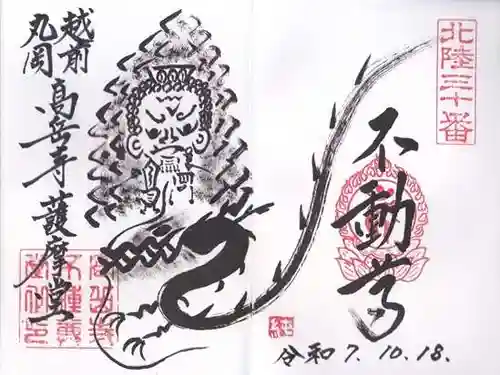 北陸三十番
不動尊
令和7.10.18.
越前
丸岡
高岳寺護摩堂